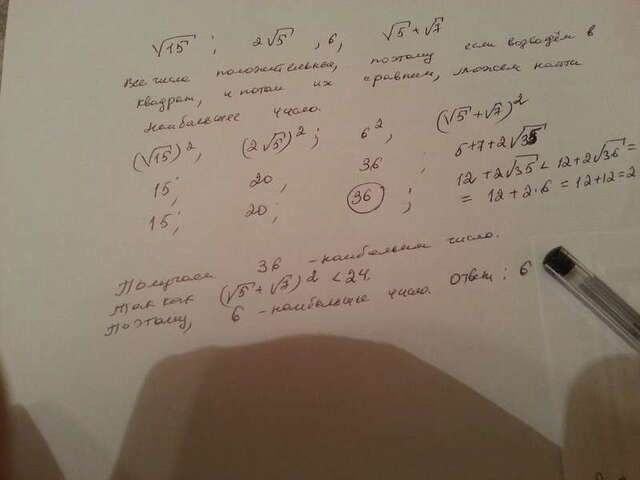 √15 ; 2√5 , 6, √5 + √7
Все числа положительные, поэтому если возведём в
квадрат, и потом их сравним, можем найти
наибольшее число.
(√15)², (2√5)²; 6², (√5 + √7)²
15; 20, 36 , 5+7+2√35
15; 20; 36 ; 12 + 2√35 < 12 + 2√36 =
= 12 + 2·6 = 12+12=2
Получаем 36 - наибольшее число.
Так как (√5 + √7)² < 24.
Поэтому, 6 - наибольшее число. Ответ: 6